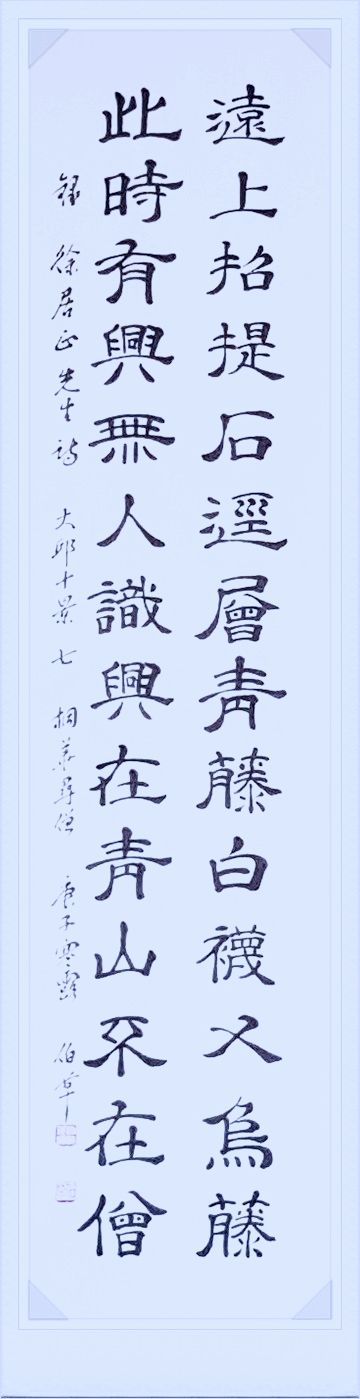 遠上招提石逕層青藤白襪又烏藤
此時有興無人識興在青山不在僧
錄 徐居正先生詩 大邱十景 七 桐華尋僧 庚子寒露 伯草